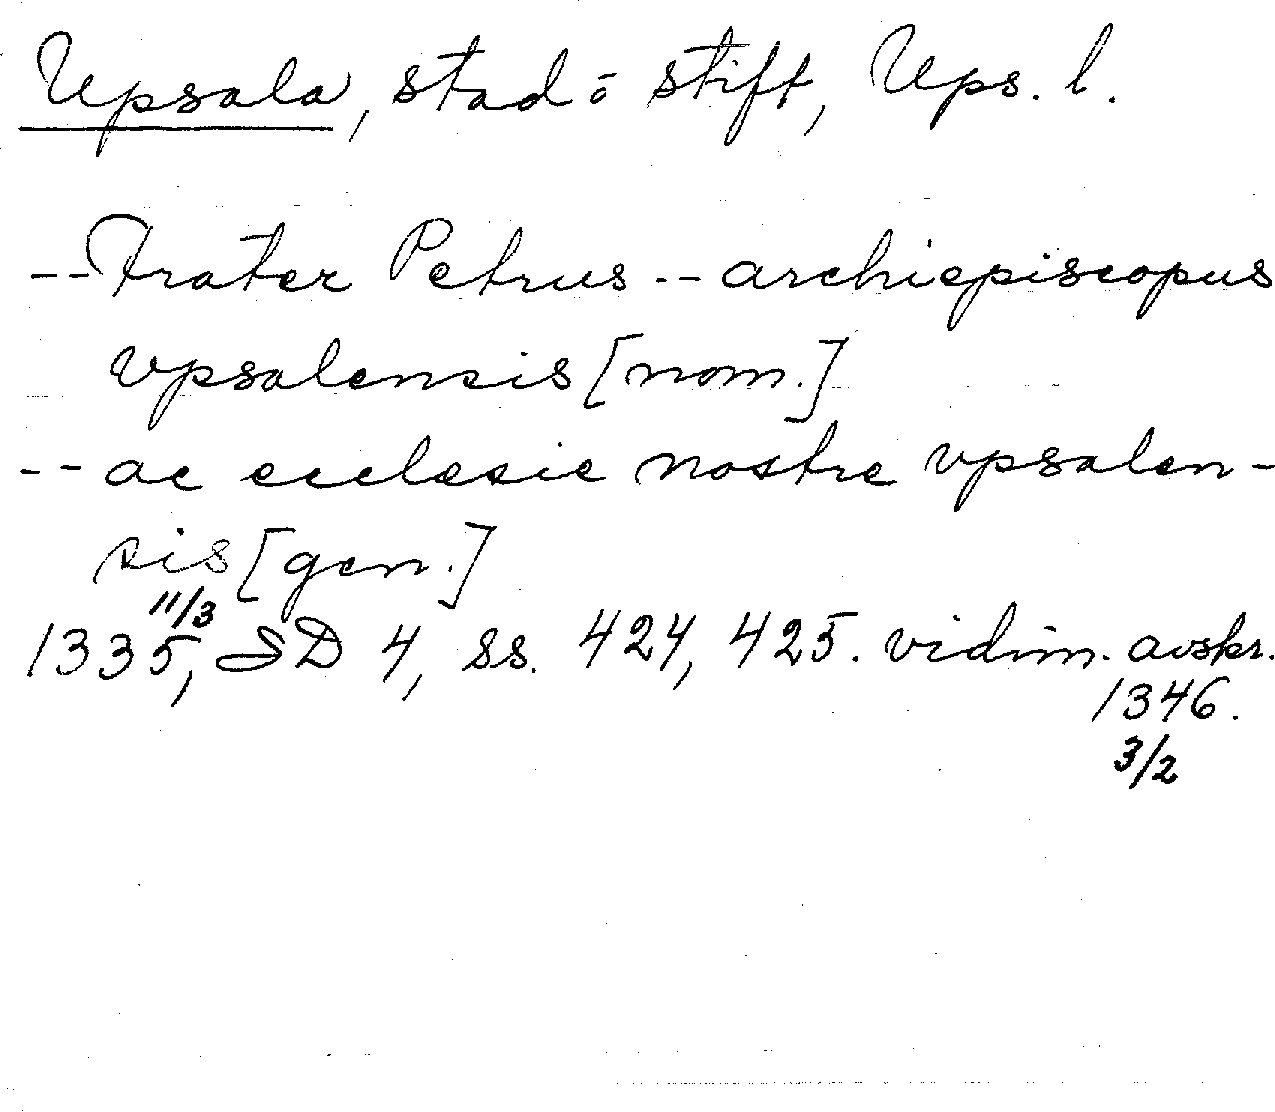 Upsala, stad o stift, Ups. l.
-- Frater Petrus -- archiepiscopus
vpsalensis [nom.]
-- ac ecclesie nostre vpsalen-
sis [gen.]
11/3
1335, SD 4, ss. 424, 425. vidim. avskr.
1346.
3/2